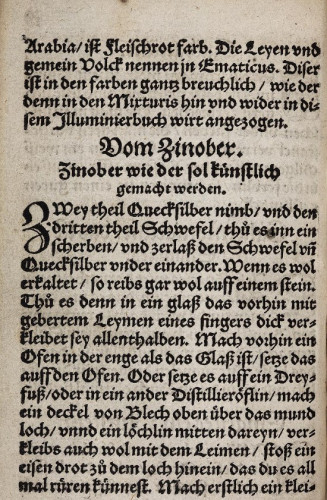 Arabia/ ist Fleischrot farb. Die Leyen vnd
gemein Volck nennen jn Ematicus. Diser
ist in den farben gantz breuchlich/ wie der
denn in den Mixturis hin vnd wider in di-
sem Illuminierbuch wirt angezogen.
Vom Zinober.
Zinober wie der sol künstlich
gemacht werden.
ZWey theil Quecksilber nimb/ vnd den
dritten theil Schwefel/ thů es inn ein
scherben/ vnd zerlaß den Schwefel vn̄
Quecksilber vnder einander. Wenn es wol
erkaltet/ so reibs gar wol auff einem stein.
Thů es denn in ein glaß das vorhin mit
gebertem Leymen eines fingers dick ver-
kleibet sey allenthalben. Mach vorhin ein
Ofen in der enge als das Glaß ist/ setze das
auff den Ofen. Oder setze es auff ein Drey-
fuß/ oder in ein ander Distillieröflin/ mach
ein deckel von Blech oben über das mund
loch/ vnnd ein löchlin mitten dareyn/ ver-
kleibs auch wol mit dem Leimen/ stoß ein
eisen drot zů dem loch hinein/ das du es all
mal rüren künnest. Mach erstlich ein klei-